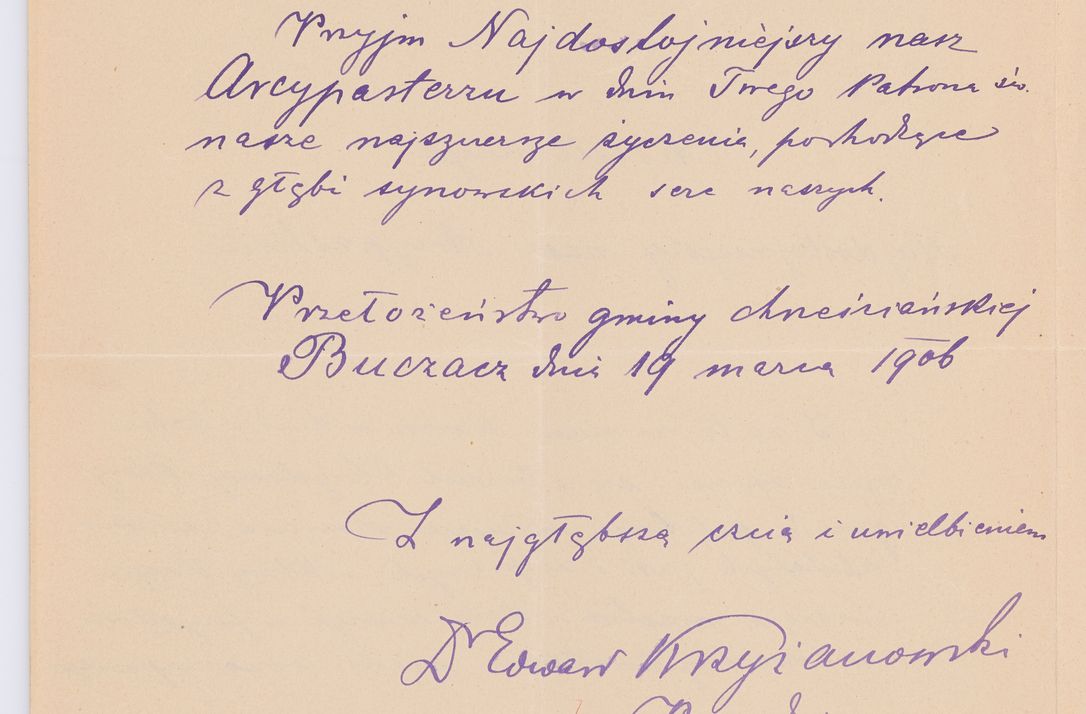 Przyjm Najdostojniejszy nasz
Arcypasterzu w dniu Twego Patrona św.
nasze najszczersze życzenia, pochodzące
z głębi synowskich serc naszych.
Przełożeństwo gminy chrześciańskiej
Buczacz dnia 19 marca 1906
Z najgłębszą czcią i uwielbieniem
Dr Edward Krzyżanowski